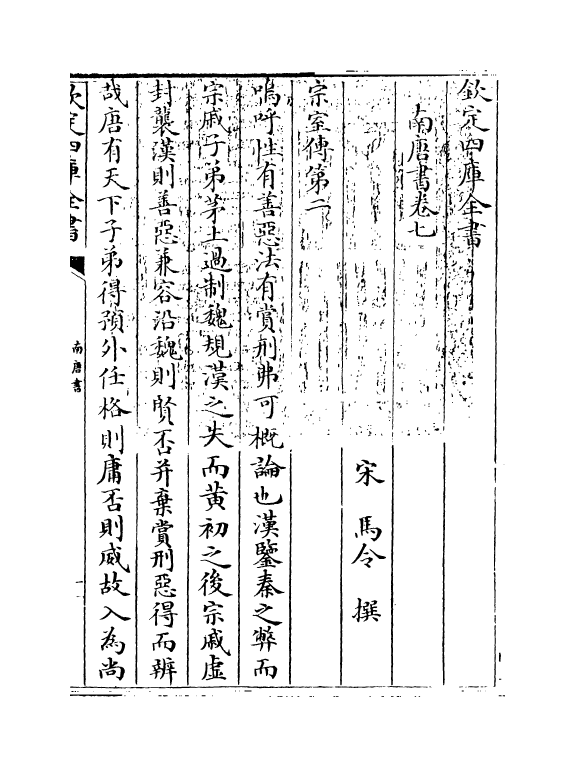 欽定四庫全書
南唐書卷七
宋 馬令 撰
宗室傳第二
嗚呼性有善惡法有賞刑弗可概論也漢鑒秦之弊而
宗戚子弟茅土過制魏規漢之失而黄初之後宗戚虚
封襲漢則善惡兼容沿魏則賢否并棄賞刑惡得而辨
哉唐有天下子弟得預外任格則庸否則威故入為尚
欽定四庫全書
南唐書